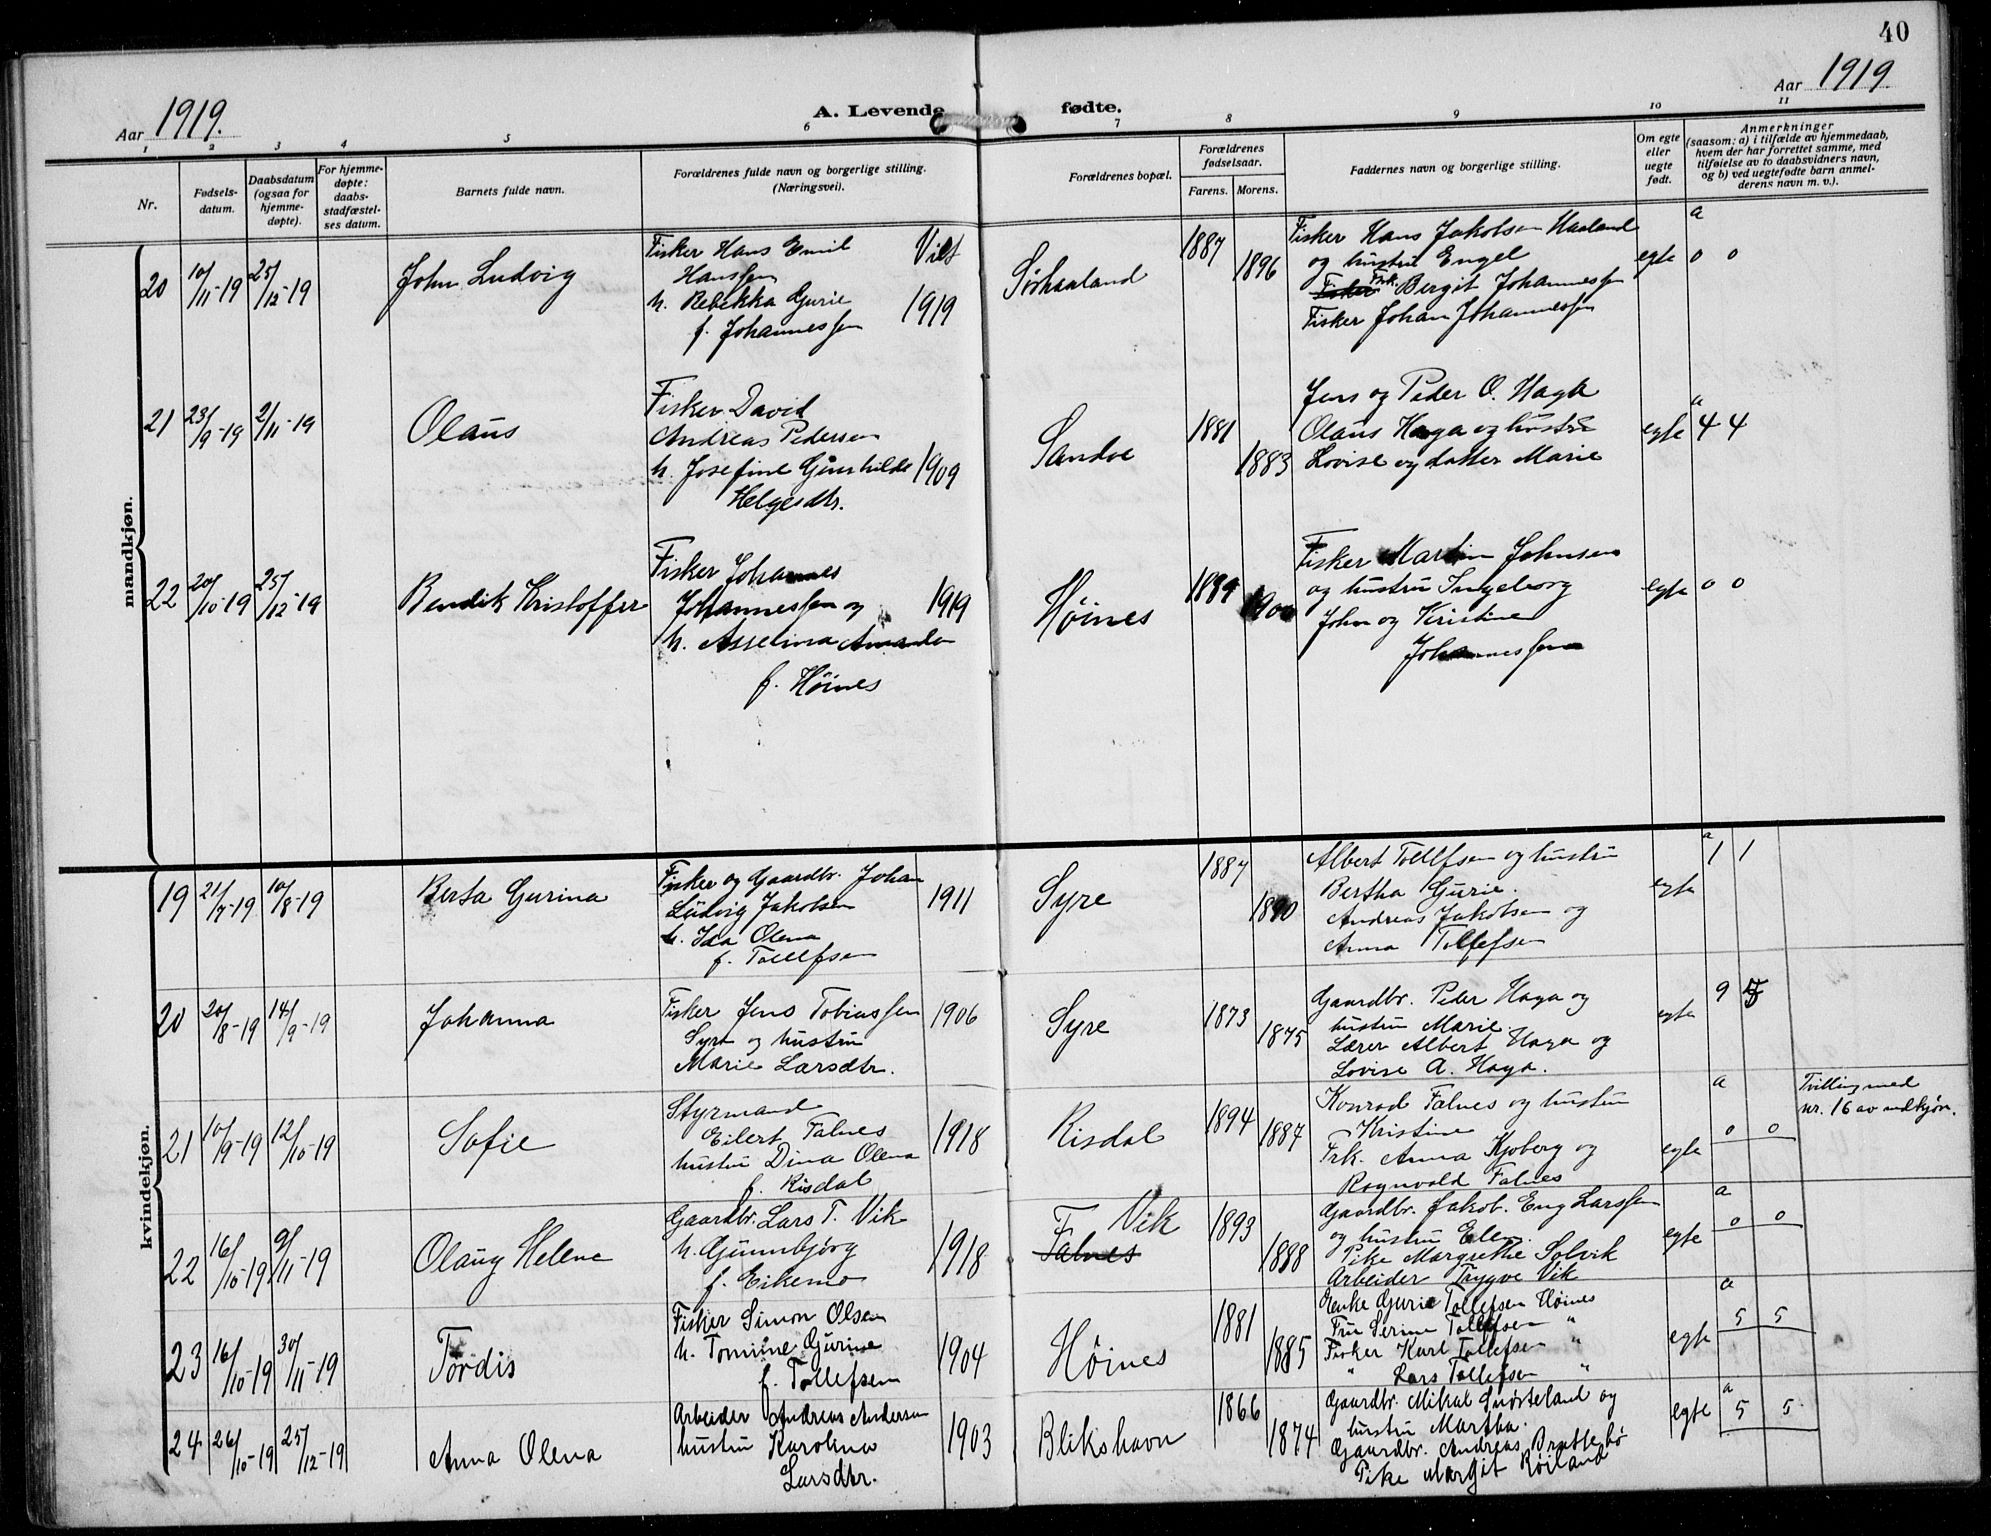 40
Aar 1919.
A. Levende fødte.
Aar 1919
1 2 3 4 5 6 7 8 9 10 11
Nr.
Fødsels-
datum.
Daabsdatum
(ogsaa for
hjemme-
døpte).
For hjemme-
døpte:
daabs-
stadfæstel-
ses datum.
Barnets fulde navn.
Forældrenes fulde navn og borgerlige stilling.
(Næringsvei).
Forældrenes bopæl.
Forældrenes
fødselsaar.
Farens. Morens.
Faddernes navn og borgerlige stilling.
Om egte
eller
uegte
født.
Anmerkninger
(saasom: a) i tilfælde av hjemmedaab,
hvem der har forrettet samme, med
tilføielse av to daabsvidners navn,
og b) ved uegtefødte barn anmel-
derens navn m. v.).
mandkjøn.
20 10/11-19 25/12-19 John Ludvig
Fisker Hans Emil Viet
Hanssen
h. Rebekka Gurie
f. Johannessen 1919
Sørhaaland 1887 1896
Fisker Hans Jakobsen Haaland
og hustru Engel
Fisker Frk. Bergit Johannessen
Fisker Johan Johannessen
egte a 0 0
21 23/9-19 2/11-19 Olaus
Fisker David
Andreas Pedersen
h. Josefine Gunhilde 1909
Helgesdtr.
Sandve 1881 1883
Jens og Peder O. Haga
Olaus Haga og hustru
Lovise og datter Marie
egte a 4 4
22 20/10-19 25/12-19 Bendik Kristoffer
Fisker Johannes
Johannessen og 1919
h. Asselina Amanda
f. Høines
Høines 1889 1900
Fisker Martin Johnsen
og hustru Ingeborg
John og Kristine
Johannessen
egte 0 0
kvindekjøn.
19 21/7-19 10/8-19 Berta Gurina
Fisker og Gaardbr. Johan
Ludvig Jakobsen 1911
h. Ida Olena
f. Tollefsen
Syre 1887 1890
Albert Tollefsen og hustru
Bertha Gurie.
Andreas Jakobsen og
Anna Tollefsen
egte a 1 1
20 20/8-19 14/9-19 Johanna
Fisker Jens Tobiassen 1906
Syre og hustru
Marie Larsdtr.
Syre 1873 1875
Gaardbr. Peder Haga og
hustru Marie.
Lærer Albert Haga og
Lovise A. Haga.
egte 9
21 10/9-19 12/10-19 Sofie
Styrmand
Eilert Falnes 1918
hustru Dina Olena
f. Risdal
Risdal 1894 1887
Konrad Falnes og hustru
Kristine
Frk. Anna Kjoberg og
Rognvald Falnes
egte a 0 0
Tvilling med
nr. 16 av mdkjøn.
22 16/10-19 9/11-19 Olaug Helene
Gaardbr. Lars T. Vik
h. Gunnbjørg 1918
f. Eikemo
Vik
Falnes 1893 1888
Gaardbr. Jakob. Eng Larssen
og hustru Elen.
Pike Margrethe Solvik
Arbeider Trygve Vik
egte a 0 0
23 16/10-19 30/11-19 Tordis
Fisker Simon Olsen
h. Tomine Gurine 1904
f. Tollefsen
Høines 1881 1885
Enke Gurie Tollefsen Høines
Fru Serine Tollefsen "
Fisker Karl Tollefsen "
" Lars Tollefsen "
egte a 5 5
24 26/10-19 25/12-19 Anna Olena
Arbeider Andreas Andersen 1903
hustru Karoline
Larsdtr.
Blikshavn 1866 1874
Gaardbr. Mikal Snørteland og
hustru Martha.
Gaardbr. Andreas Brattebø
Pike Margit Røiland
egte a 5 5